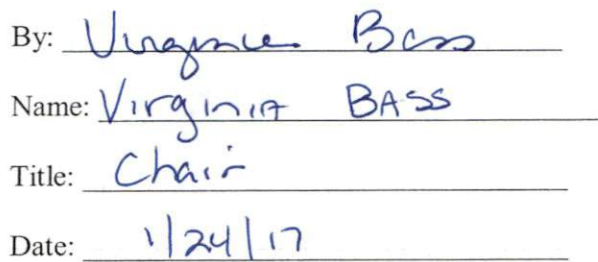 By: Virginia Bass
Name: Virginia BASS
Title: Chair
Date: 1/24/17